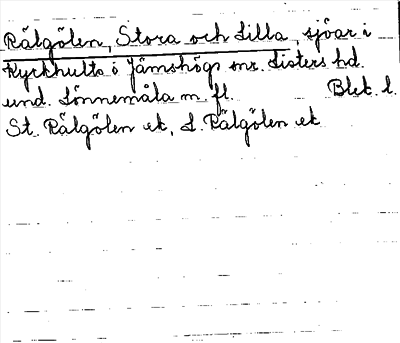 Rälgölen, Stora och Lilla, sjöar i
Kyrkhults o Jämshögs snr. Listers hd.
und. Lönnemåla m. fl. Blek. l.
St. Rälgölen ek, L. Rälgölen ek